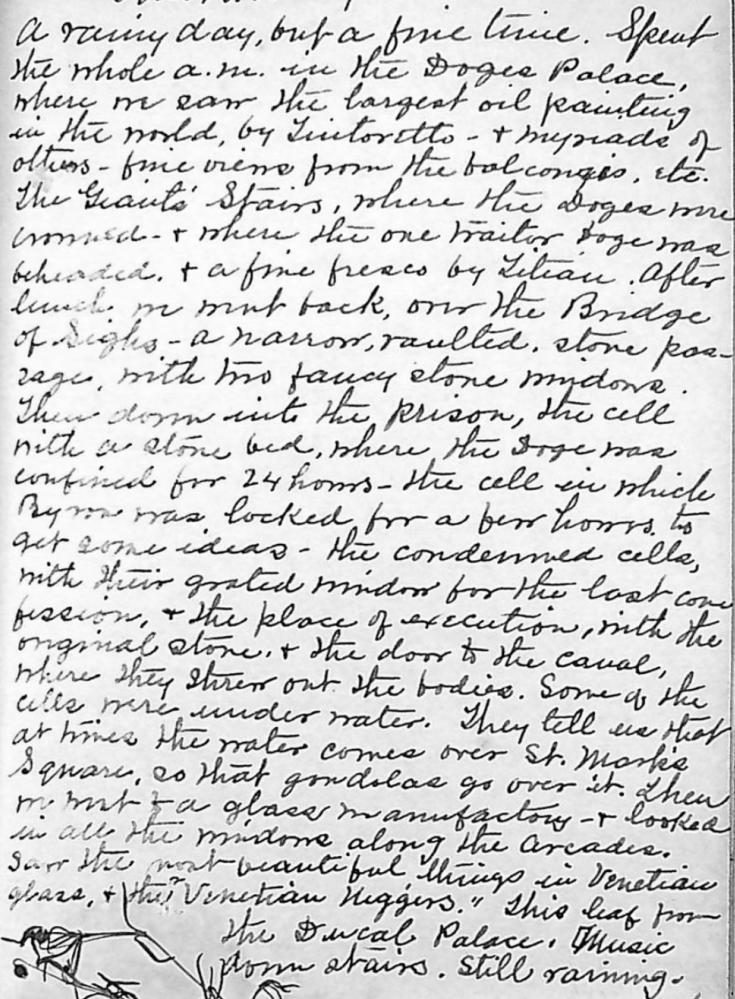 a rainy day, but a fine time. Spent
the whole a.m. in the Doges Palace,
where we saw the largest oil painting
in the world, by Tintoretto - & myriads of
others - fine views from the balconies, etc.
The Giants' Stairs, where the Doges were
crowned - & where the one traitor Doge was
beheaded. & a fine fresco by Titian. After
lunch we went back, over the Bridge
of Sighs - a narrow, vaulted, stone pas-
sage, with two fancy stone windows.
Then down into the prison, the cell
with a stone bed, where the Doge was
confined for 24 hours - the cell in which
Byron was locked for a few hours to
get some ideas - the condemned cells,
with their grated window for the last con
fession, & the place of execution, with the
original stone. & the door to the canal,
where they threw out the bodies. Some of the
cells were under water. They tell us that
at times the water comes over St. Mark's
Square, so that gondolas go over it. Then
we went to a glass manufactory - & looked
in all the windows along the Arcades.
Saw the most beautiful things in Venetian
glass, & the "Venetian Niggers." This leaf from
the Ducal Palace. Music
down stairs. Still raining.